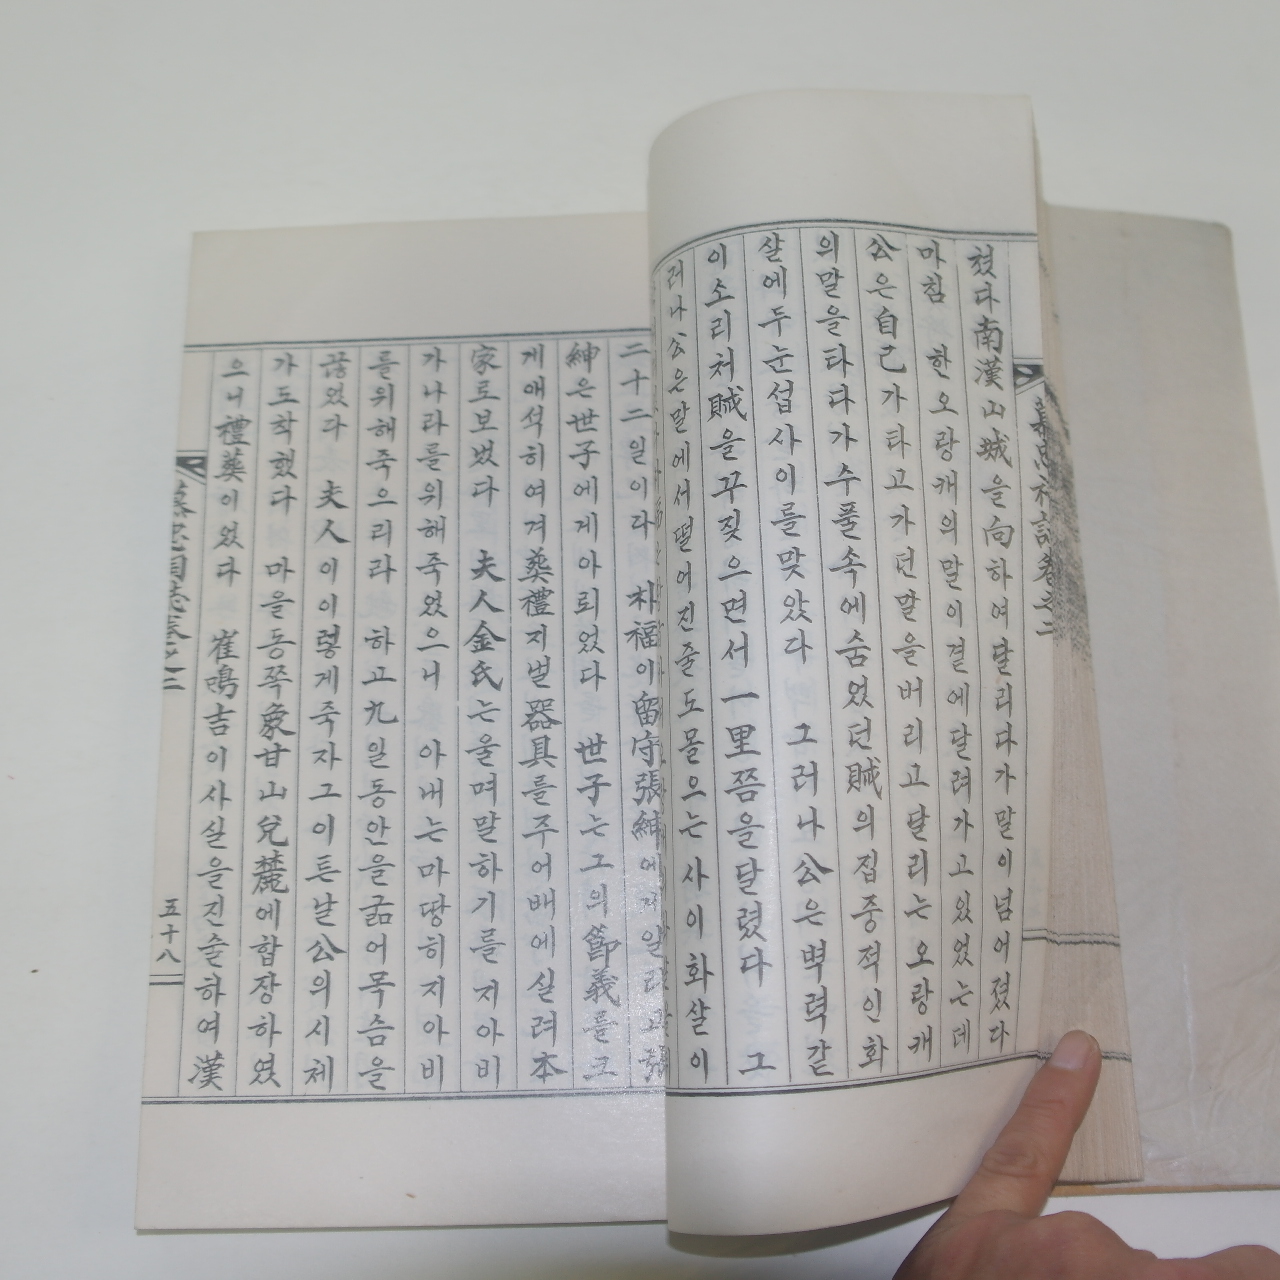 쳤다南漢山城을向하여달리다가말이넘어졌다
마침 한오랑캐의말이곁에달려가고있었는데
公은自己가타고가던말을버리고달리는오랑캐
의말을타다가수풀속에숨었던賊의집중적인화
살에두눈섭사이를맞았다 그러나公은벽력같
이소리처賊을꾸짖으면서一里쯤을달렸다 그
러나公은말에서떨어진줄도몰으는사이화살이
二十二일이다 朴福이留守張紳에게알리고張
紳은世子에게아뢰었다 世子는그의節義를크
게애석히여겨葬禮지낼器具를주어배에실려本
家로보냈다 夫人金氏는울며말하기를저아비
가나라를위해죽었으니 아내는마땅히지아비
를위해죽으리라 하고九일동안을굶어목숨을
끊었다 夫人이이렇게죽자그이튼날公의시체
가도착했다 마을동쪽象甘山兌麓에합장하였
으니禮葬이었다 崔鳴吉이사실을진술하여漢
五十八